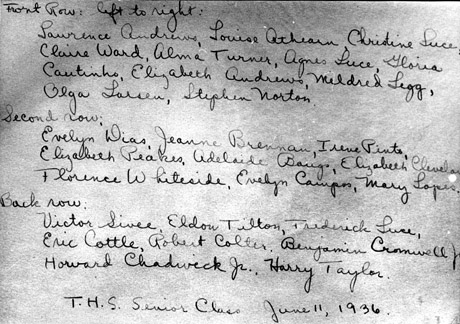 Front Row: left to right:
Lawrence Andrews, Louise Athearn, Christine Luce,
Claire Ward, Alma Turner, Agnes Luce, Gloria
Coutinho, Elizabeth Andrews, Mildred Legg,
Olga Larsen, Stephen Norton.
Second row:
Evelyn Dias, Jeanne Brennan, Irene Pinto,
Elizabeth Peakes, Adelaide, Elizabeth
Florence Whiteside, Evelyn Campos, Mary Lopes.
Back row:
Victor Sivee, Eldon Tilton, Frederick Luce,
Eric Cottle, Robert Colter, Benjamin Cromwell
Howard Chadwick Jr., Harry Taylor.
T.H.S. Senior Class June 11, 1936.